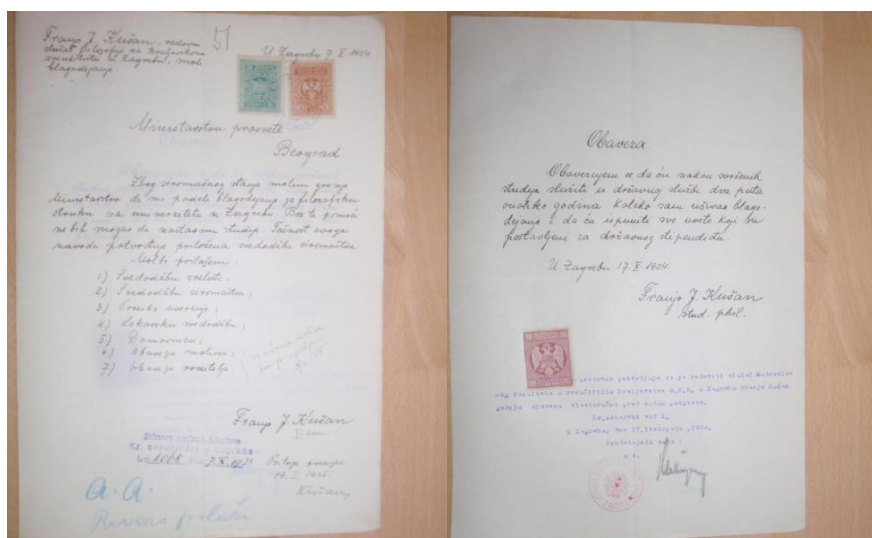 Franjo J. Kušan, redovni
slušač filozofije na Kraljevskom
sveučilištu u Zagrebu, moli
blagodejanje
51
U Zagrebu 7. X. 1924.
Ministarstvu prosvete
Beograd.
Zbog siromašnog stanja molim gornje
Ministarstvo da mi podeli blagodejanje za filozofsku
struku na univerzitetu u Zagrebu Bez te pomoći
ne bih mogao da nastavim studije Tačnost ovoga
navoda potvrdjuje priložena svedodžba siromaštva.
Molbi prilažem:
1.) Svedodžbu zrelosti;
2.) Svedodžbu siromaštva;
3.) Poresko uverenje;
4.) Lekarsku svedodžbu;
5.) Domovnicu;
6.) Obavezu molioca;
7.) Obavezu roditelja.
Franjo J. Kušan
1068 7.X.1925
Priloge primio
Kušan
a. a.
Obaveza.
Obavezujem se da ću nakon svršenih
studija služiti u državnoj službi dva puta
onoliko godina koliko sam uživao blago-
dejanje i da ću ispuniti sve uvete koji su
postavljeni za državnog stipendistu.
U Zagrebu 17. X. 1924.
Franjo J. Kušan
stud. phil.
potvrdjuje da je redoviti slušač Mudroslov
nog fakulteta u Sveučilištu Kraljevstva S.H.S. u Zagrebu Franjo Kušan
gornju obavezu vlastoručno pred nama potpisao.
U Zagrebu, dne 17. listopada 1924.